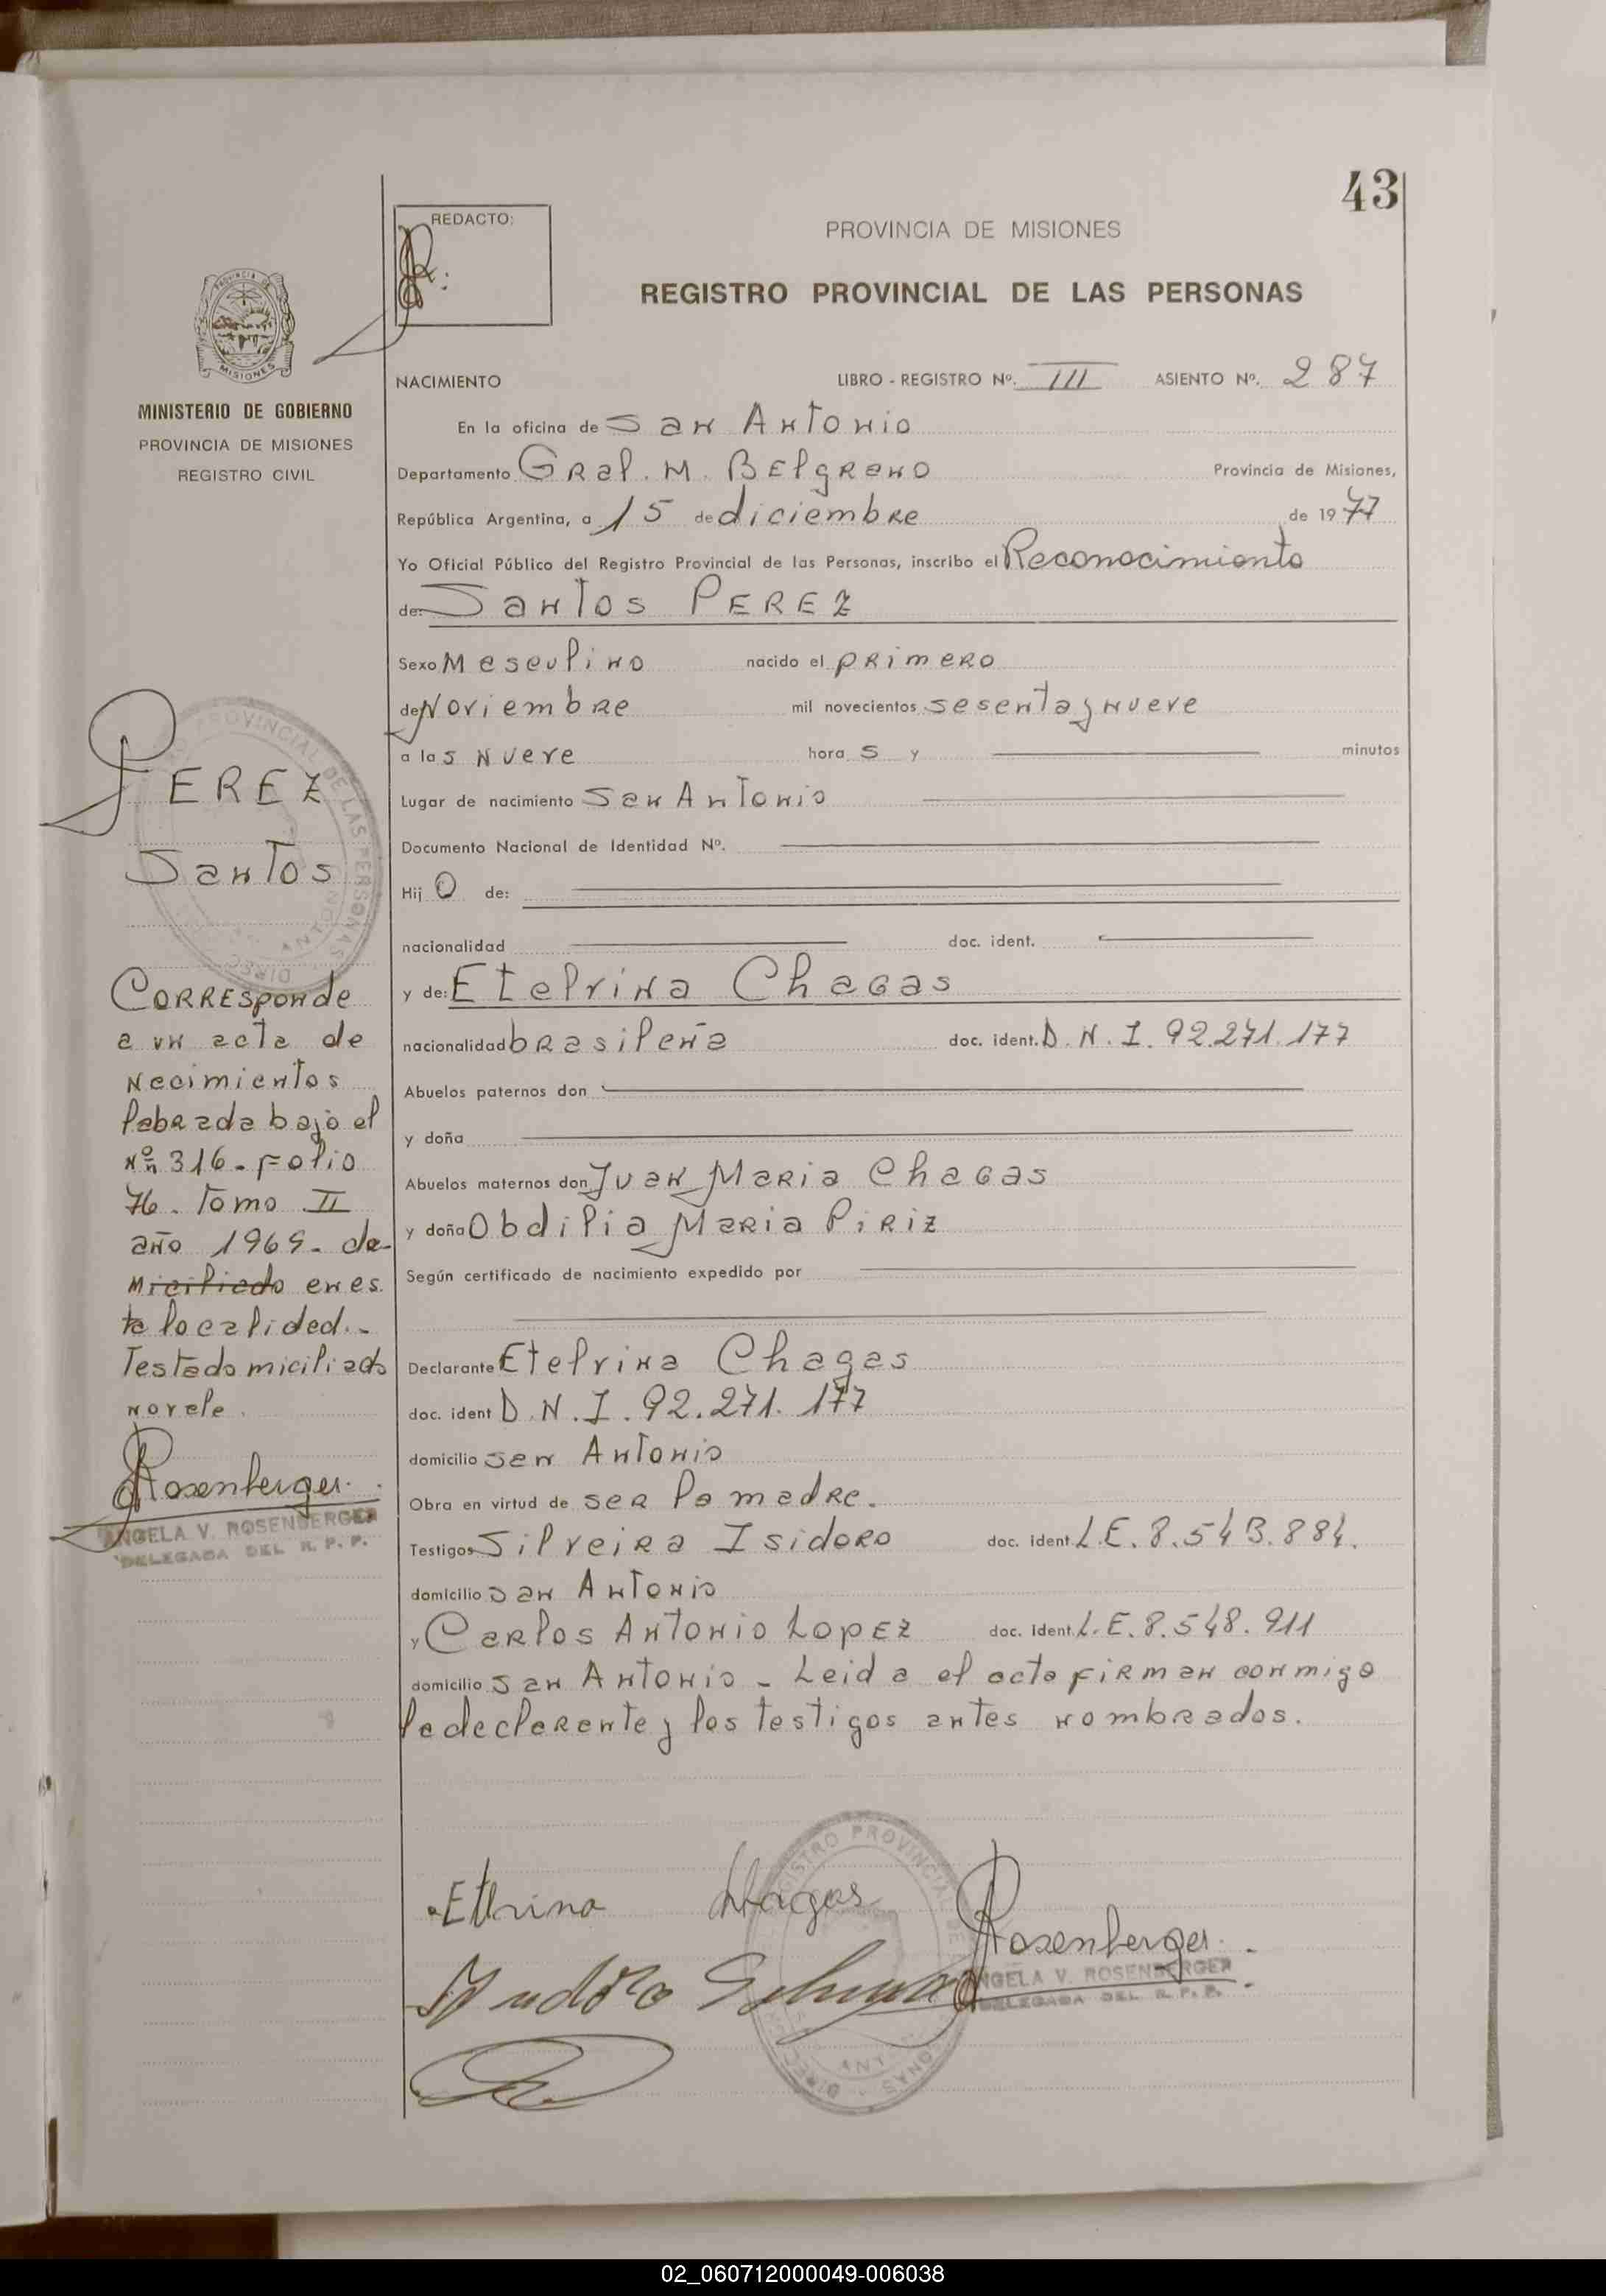 43
REDACTO:
PROVINCIA DE MISIONES
REGISTRO PROVINCIAL DE LAS PERSONAS
MISIONES
MINISTERIO DE GOBIERNO
PROVINCIA DE MISIONES
REGISTRO CIVIL
NACIMIENTO LIBRO - REGISTRO Nº. III ASIENTO Nº. 287
En la oficina de San Antonio
Departamento Gral. M. Belgrano Provincia de Misiones,
República Argentina, a 15 de diciembre de 1977
Yo Oficial Público del Registro Provincial de las Personas, inscribo el Reconocimiento
de: Santos PEREZ
Sexo Masculino nacido el primero
de Noviembre mil novecientos sesenta y nueve
a las nueve horas y minutos
Lugar de nacimiento San Antonio
Documento Nacional de Identidad Nº.
Hijo de:
nacionalidad doc. ident.
y de: Etelvina Chagas
nacionalidad brasileña doc. ident. D.N.I. 92.271.177
Abuelos paternos don
y doña
Abuelos maternos don Juan Maria Chagas
y doña Obdilia Maria Piriz
Según certificado de nacimiento expedido por
Declarante Etelvina Chagas
doc. ident D.N.I. 92.271.177
domicilio San Antonio
Obra en virtud de ser la madre.
Testigos Silveira Isidoro doc. ident. L.E. 8.543.884.
domicilio San Antonio
y Carlos Antonio Lopez doc. ident. L.E. 8.548.911
domicilio San Antonio - Leida el acta firman conmigo
la declarante y los testigos antes nombrados.
PEREZ
Santos
Corresponde
a un acta de
Nacimientos
labrada bajo el
Nº 316 - Folio
76. Tomo II
año 1969 - do-
miciliado en es
ta localidad.-
Testado miciliado
no vale.
Rosenberger.
ANGELA V. ROSENBERGER
DELEGADA DEL R. P. P.
Etlvina Chagas
Rosenberger.
ANGELA V. ROSENBERGER
DELEGADA DEL R. P. P.
02_060712000049-006038